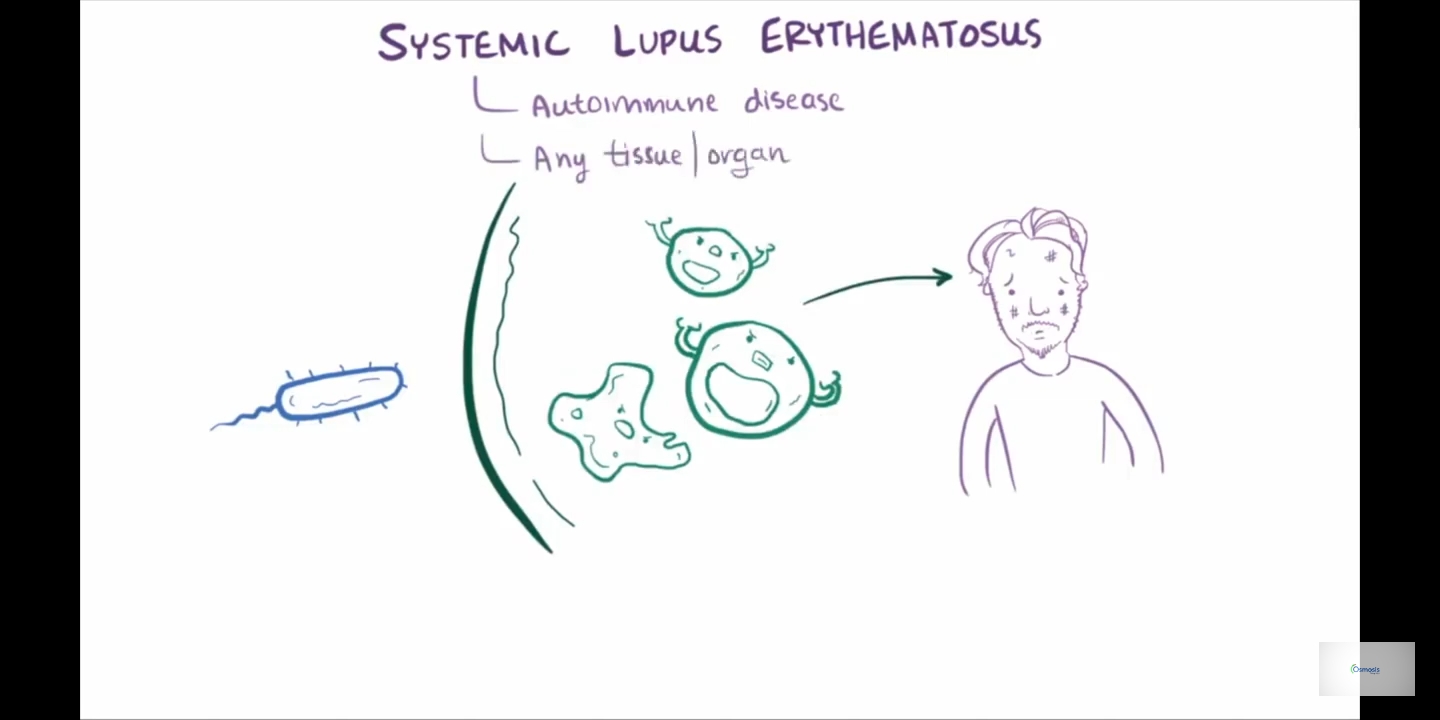 SYSTEMIC LUPUS ERYTHEMATOSUS
Autoimmune disease
Any tissue|organ
Osmosis